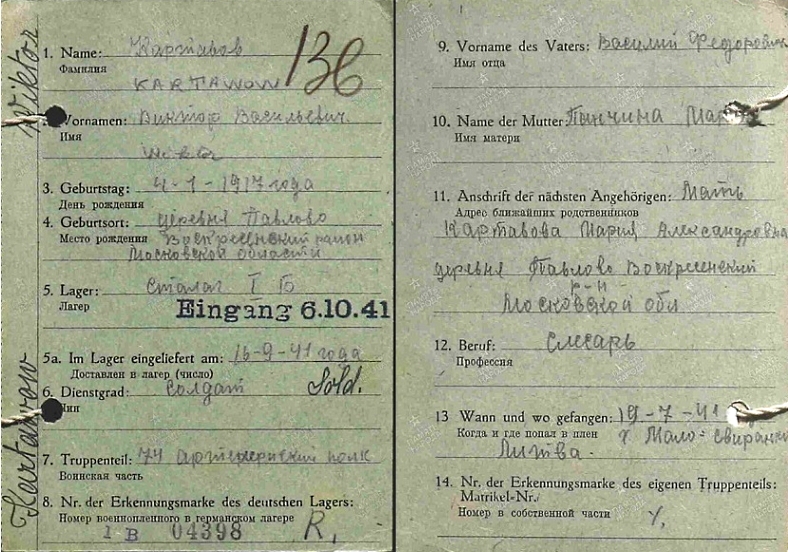 Wiktor Kartawow
136
1. Name: Картавов
Фамилия
KARTAWOW
Vornamen: Виктор Васильевич
Имя
Wiktor
3. Geburtstag: 4-1-1917 года
День рождения
4. Geburtsort: деревня Павлово
Место рождения Воскресенский район
Московской области
5. Lager: Сталаг I Б
Лагер
Eingang 6.10.41
5a. Im Lager eingeliefert am: 16-9-41 года
Доставлен в лагер (число)
6. Dienstgrad: Солдат Sold.
Чин
7. Truppenteil: 74 полк
Воинская часть
8. Nr. der Erkennungsmarke des deutschen Lagers:
Номер военнопленного в германском лагере
I B 04398 R,
9. Vorname des Vaters: Василий Федорович
Имя отца
10. Name der Mutter:
Имя матери
11. Anschrift der nächsten Angehörigen: Мать
Адрес ближайших родственников
Картавова Мария Александровна
деревня Павлово Воскресенский
р-н
Московской обл
12. Beruf: Слесарь
Профессия
13 Wann und wo gefangen: 19-7-41
Когда и где попал в плен
Литва.
14. Nr. der Erkennungsmarke des eigenen Truppenteils:
Matrikel-Nr.
Номер в собственной части